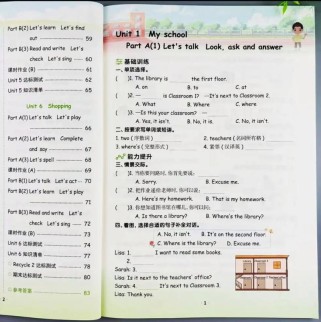 Part B(2) Let's learn Let's find
out 59
Part B(3) Read and write Let's
check Let's sing 60
课时作业(B) 61
Unit 5 达标测试 62
Unit 5 知识清单 65
Unit 6 Shopping
Part A(1) Let's talk Let's play
66
Part A(2) Let's learn Complete
and say 67
Part A(3) Let's spell 68
课时作业(A) 69
Part B(1) Let's talk Let's act 70
Part B(2) Let's learn Let's play
71
Part B(3) Read and write Let's
check Let's sing 72
课时作业(B) 73
Unit 6 达标测试 74
Unit 6 知识清单 77
Recycle 2 达标测试 78
期末达标测试 80
参考答案 83
2
Unit 1 My school
Part A(1) Let's talk Look, ask and answer
基础训练
一、单项选择。
( )1. The library is the first floor.
A. on B. to C. at
( )2. — is Classroom 1? —It's next to Classroom 2.
A. What B. Where C. where
( )3. —Is this your classroom? —
A. Yes, it isn't. B. No, it is. C. No, it isn't.
二、按要求写单词或短语。
1. two (序数词) 2. teachers (名词所有格)
3. where's (完整形式) 4. (汉译英)
能力提升
三、情景交际。
( )1.
A. Sorry. B. Excuse me.
( )2.
A. Here's my homework. B. That is my homework.
( )3.
A. Is there a library? B. Where's the library?
四、看图,选择合适的句子补全对话。
A. No, it isn't. B. It's on the second floor.
C. Where is the library? D. Excuse me.
Lisa: 1. I want to read some books.
2.
Sarah: 3.
Lisa: Is it next to the teachers' office?
Sarah: 4. It's next to Classroom 3.
Lisa: Thank you.
1